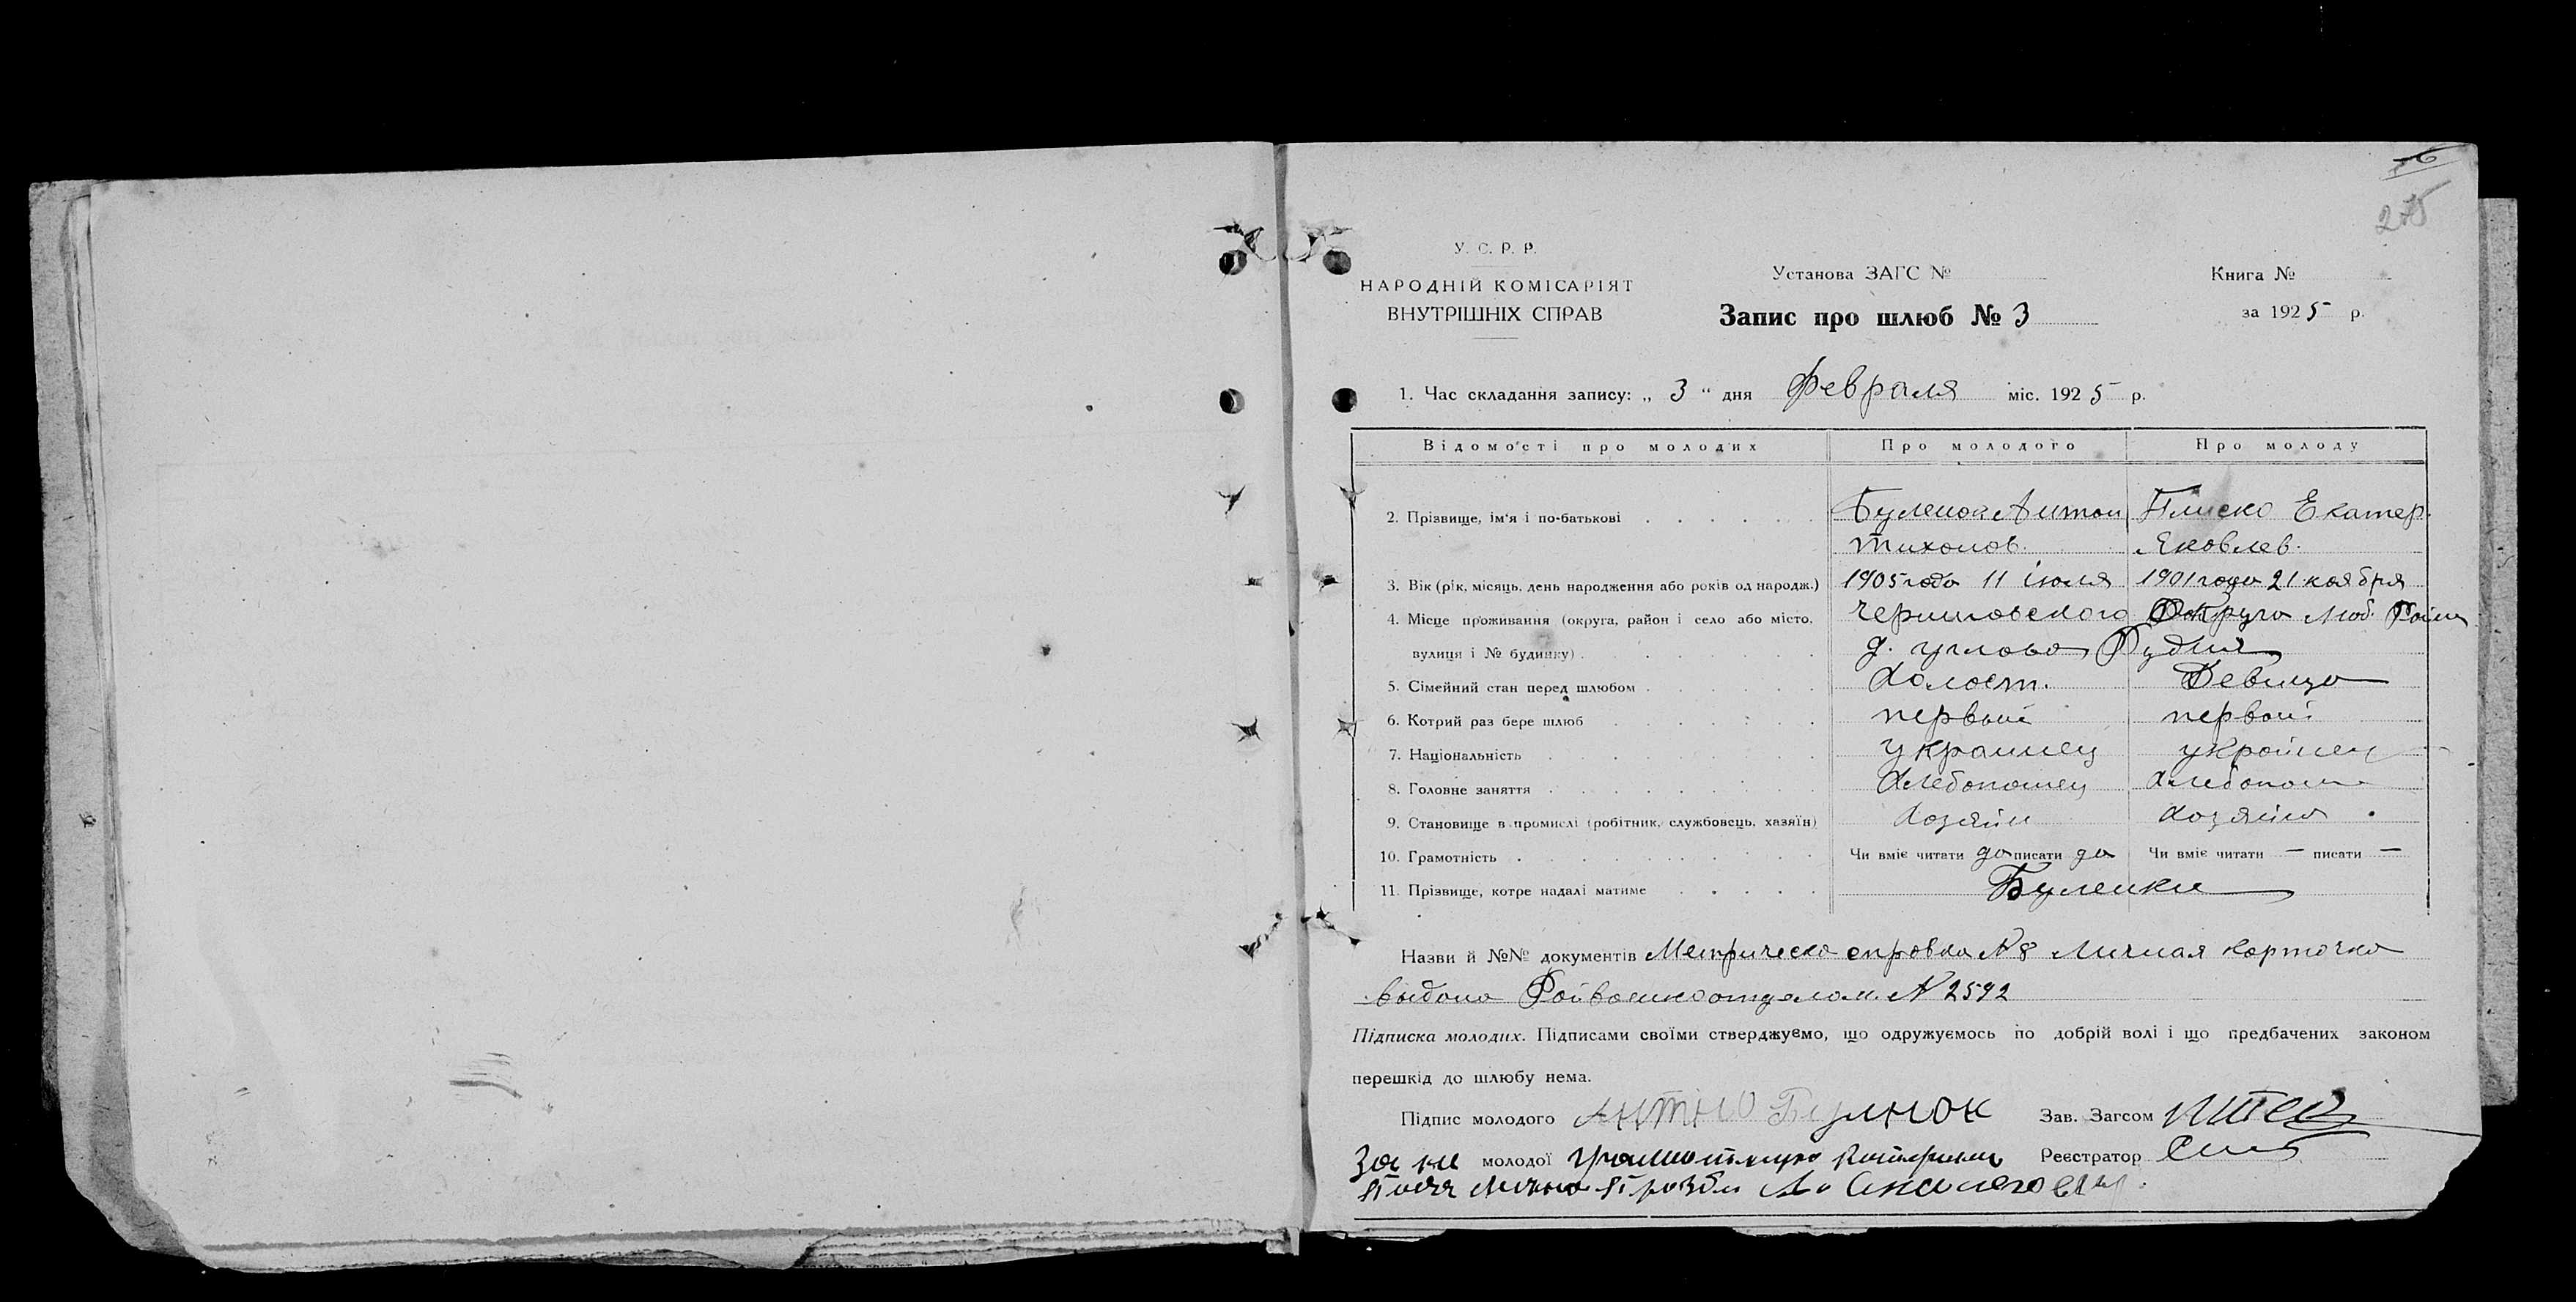 76
275
У. С. Р. Р.
НАРОДНІЙ КОМІСАРІЯТ
ВНУТРІШНІХ СПРАВ
Установа ЗАГС №
Книга №
Запис про шлюб № 3
за 1925 р.
1. Час складання запису: „ 3 “ дня Февраля міс. 1925 р.
Відомості про молодих Про молодого Про молоду
2. Прізвище, ім'я і по-батькові Буленок Антон Плиско Екатер.
Тихонов. Яковлев.
3. Вік (рік, місяць, день народження або років од народж.) 1905 года 11 июля 1901 года 21 ноября
4. Місце проживання (округа, район і село або місто, Черниговского Округа Люб. Район
вулиця і № будинку) д. Углова Рудня
5. Сімейний стан перед шлюбом Холост. Девица
6. Котрий раз бере шлюб первый первый
7. Національність украинец украинец
8. Головне заняття Хлебопашец Хлебопаш
9. Становище в промислі (робітник, службовець, хазяїн) Хозяин Хозяика
10. Грамотність Чи вміє читати да писати да Чи вміє читати — писати —
11. Прізвище, котре надалі матиме Буленки
Назви й №№ документів Метрическа справка № 8 Личная карточка
выдана Райвоенкоотделом № 2592
Підписка молодих. Підписами своїми стверджуємо, що одружуємось по добрій волі і що предбачених законом
перешкід до шлюбу нема.
Підпис молодого Антно Булнок Зав. Загсом
За не молодої грамотную Реєстратор